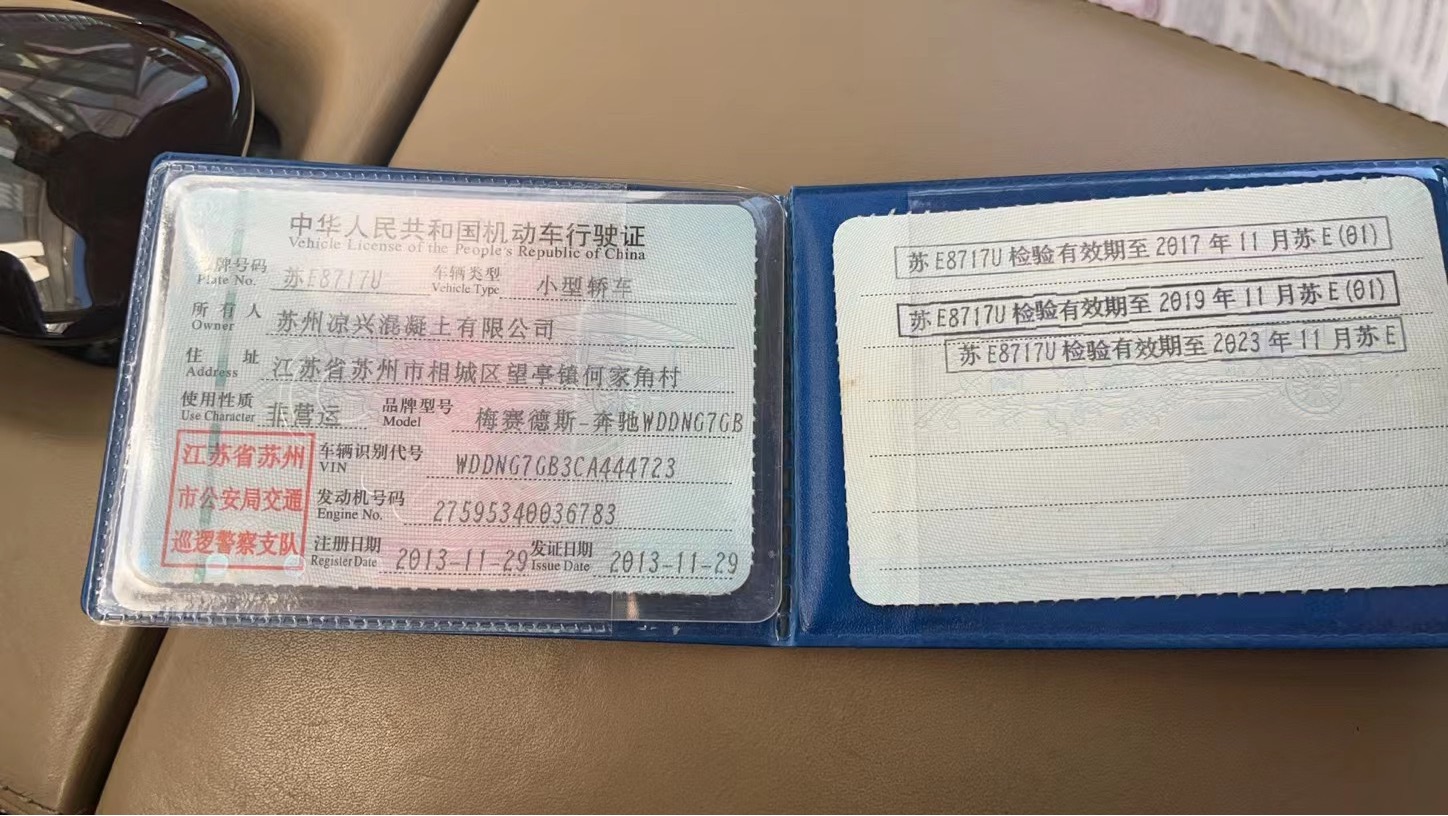 中华人民共和国机动车行驶证
Vehicle License of the People's Republic of China
牌号码 苏E8717U 车辆类型 小型轿车
Plate No. Vehicle Type
所有人 苏州凉兴混凝土有限公司
Owner
住址 江苏省苏州市相城区望亭镇何家角村
Address
使用性质 非营运 品牌型号 梅赛德斯-奔驰WDDNG7GB
Use Character Model
江苏省苏州
市公安局交通
巡逻警察支队
车辆识别代号 WDDNG7GB3CA444723
VIN
发动机号码 27595340036783
Engine No.
注册日期 2013-11-29 发证日期 2013-11-29
Register Date Issue Date
苏E8717U 检验有效期至2017年11月苏E(01)
苏E8717U 检验有效期至2019年11月苏E(01)
苏E8717U 检验有效期至2023年11月苏E